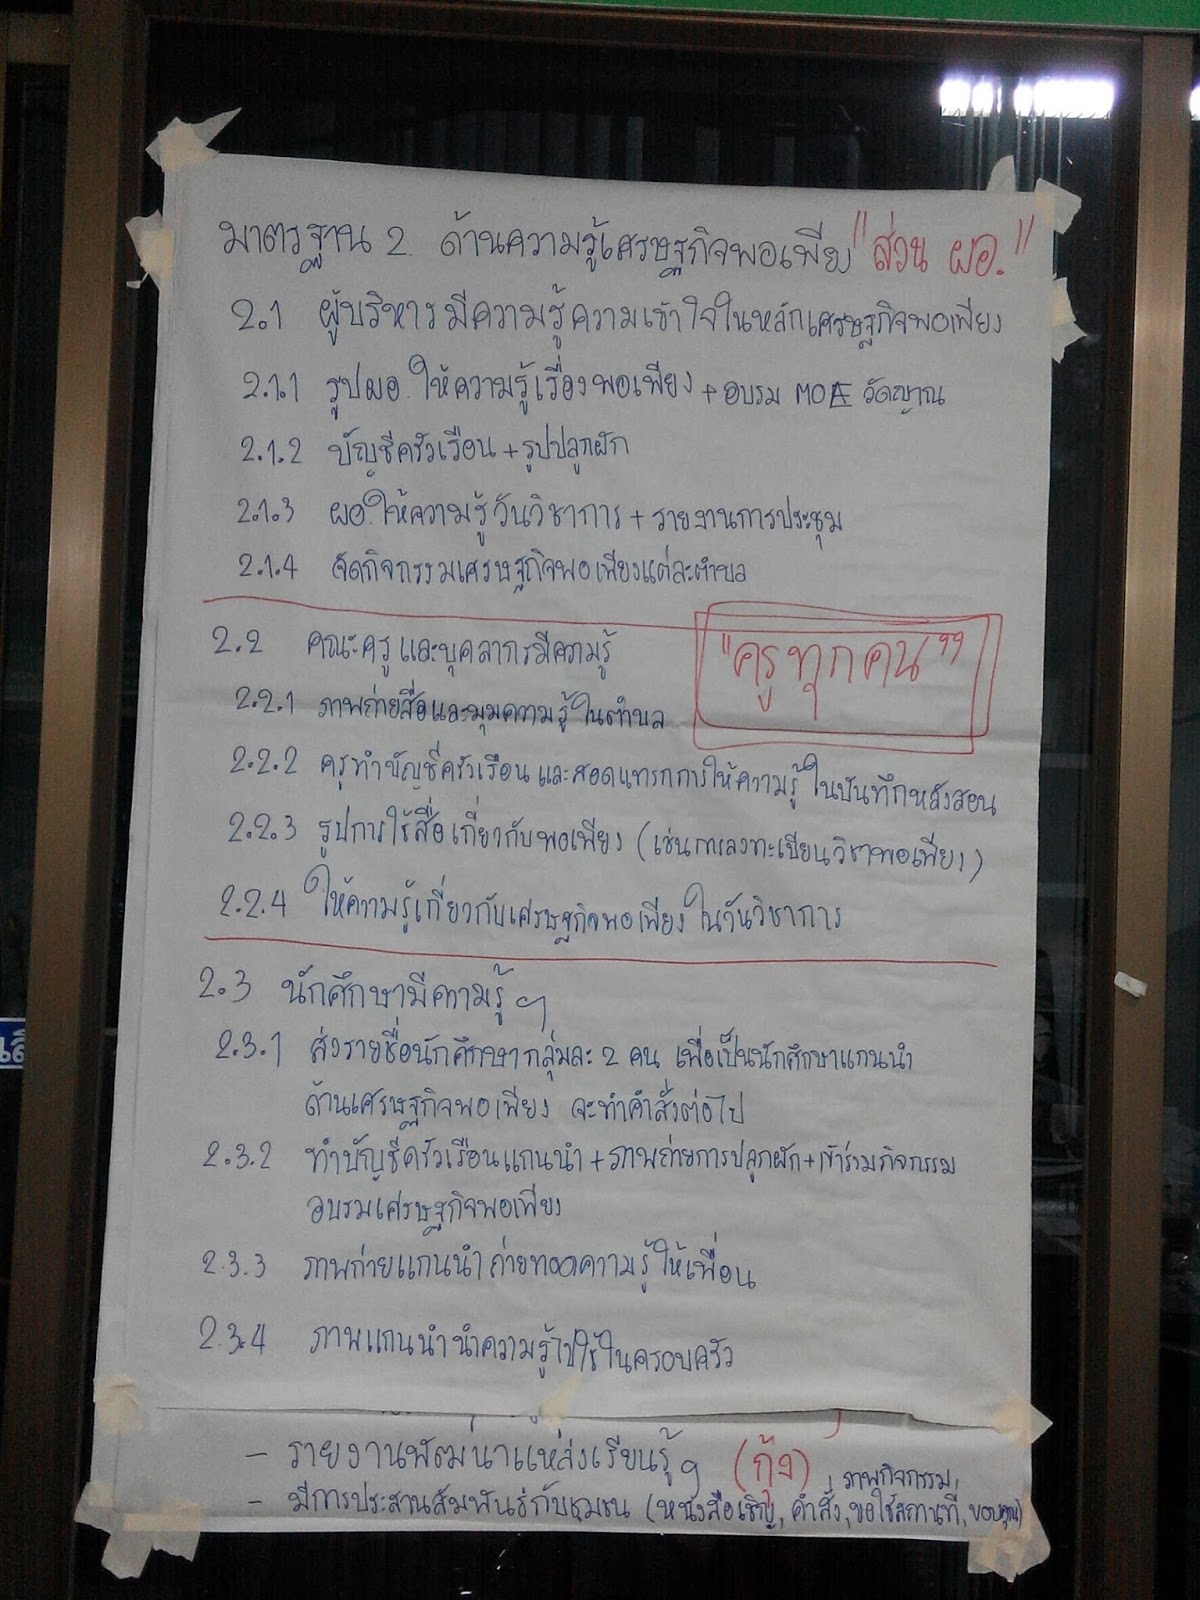 มาตรฐาน 2. ด้านความรู้เศรษฐกิจพอเพียง "ส่วน ผอ."
2.1 ผู้บริหารมีความรู้ความเข้าใจในหลักเศรษฐกิจพอเพียง
2.1.1 รูปผอ. ให้ความรู้เรื่องพอเพียง + อบรม MOE วัดญาณ
2.1.2 บัญชีครัวเรือน + รูปปลูกผัก
2.1.3 ผอ. ให้ความรู้วันวิชาการ + รายงานการประชุม
2.1.4 จัดกิจกรรมเศรษฐกิจพอเพียงแต่ละตำบล
2.2 คณะครูและบุคลากรมีความรู้ "ครูทุกคน"
2.2.1 ภาพถ่ายสื่อและมุมความรู้ในตำบล
2.2.2 ครูทำบัญชีครัวเรือน และสอดแทรกการให้ความรู้ในบันทึกหลังสอน
2.2.3 รูปการใช้สื่อเกี่ยวกับพอเพียง (เช่นการลงทะเบียนวิชาพอเพียง)
2.2.4 ให้ความรู้เกี่ยวกับเศรษฐกิจพอเพียงในวันวิชาการ
2.3 นักศึกษามีความรู้ฯ
2.3.1 ส่งรายชื่อนักศึกษากลุ่มละ 2 คน เพื่อเป็นนักศึกษาแกนนำ
ด้านเศรษฐกิจพอเพียง จะทำคำสั่งต่อไป
2.3.2 ทำบัญชีครัวเรือนแกนนำ + ภาพถ่ายการปลูกผัก + เข้าร่วมกิจกรรม
อบรมเศรษฐกิจพอเพียง
2.3.3 ภาพถ่ายแกนนำถ่ายทอดความรู้ให้เพื่อน
2.3.4 ภาพแกนนำนำความรู้ไปใช้ในครอบครัว
- รายงานพัฒนาแหล่งเรียนรู้ฯ (กุ้ง)
ภาพกิจกรรม,
- มีการประสานสัมพันธ์กับชุมชน (หนังสือเชิญ, คำสั่ง, ขอใช้สถานที่, ขอบคุณ)